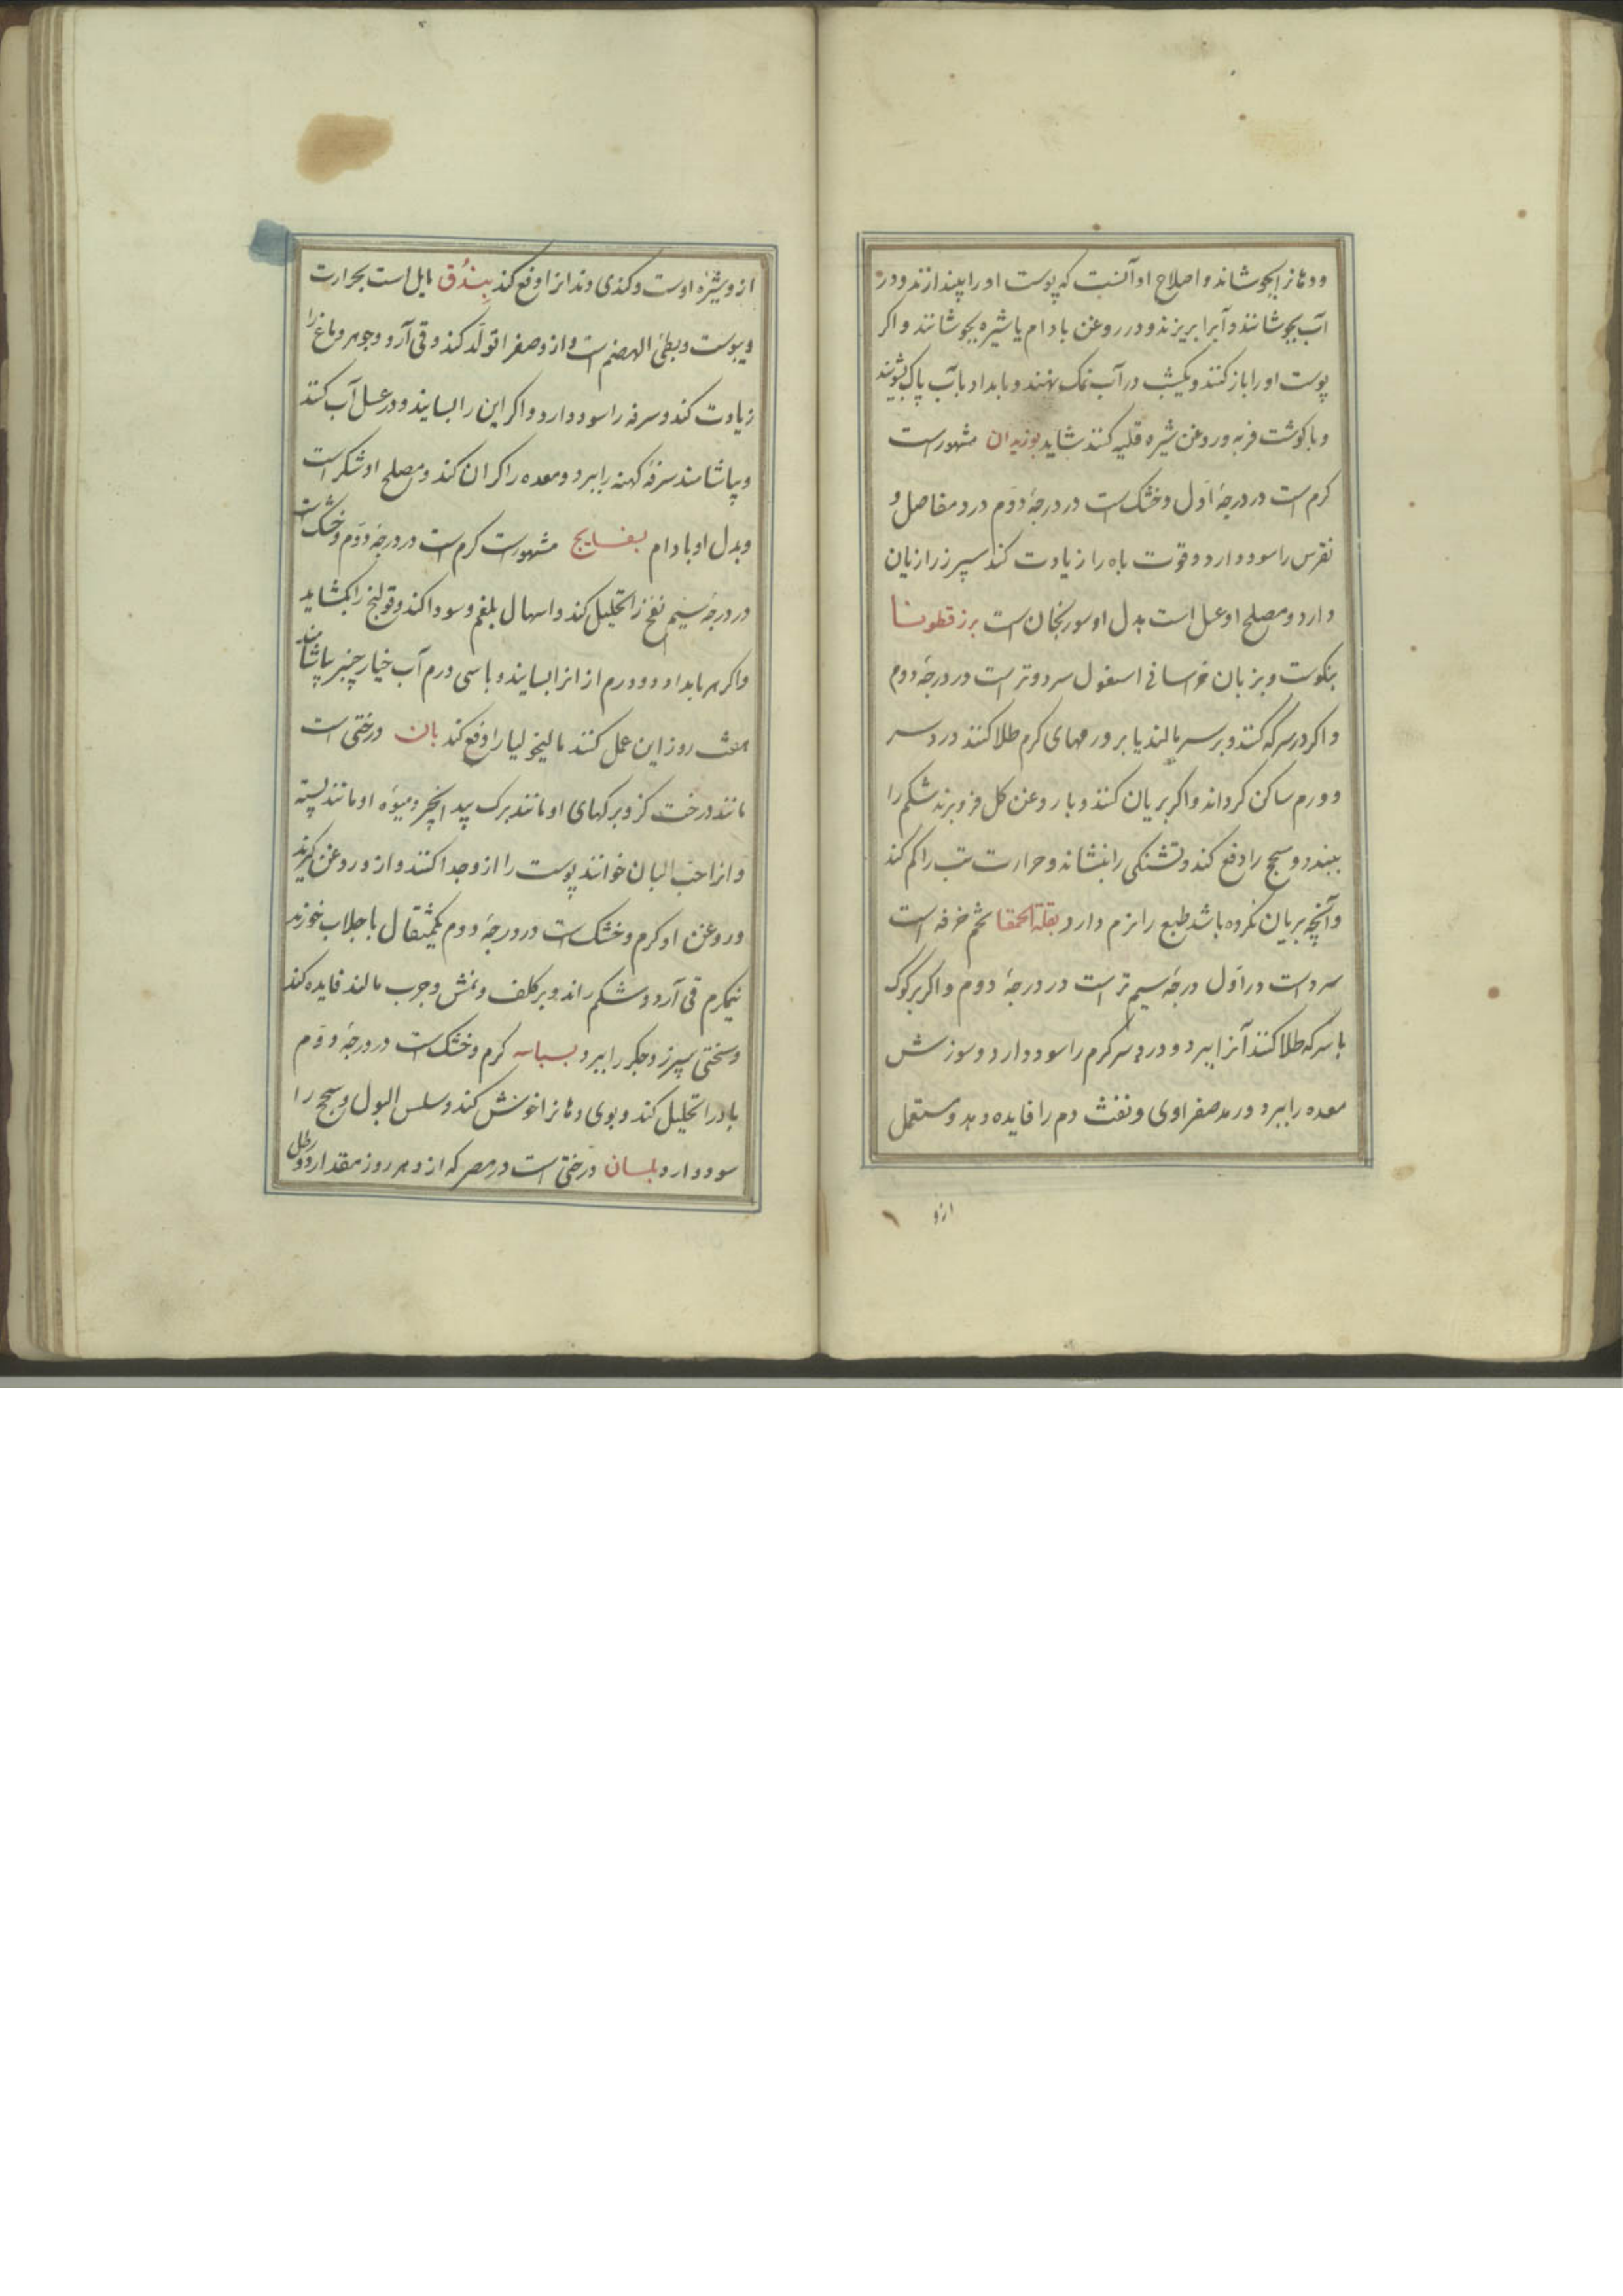 ودهانرا بجوشاند و اصلاح او آنست که پوست او را بیندازند و در
آب بجوشانند و آبرا بریزند و در روغن بادام یا شیره بجوشانند و اکر
پوست او را باز کنند و یکشب در آب نمک نهند و بامداد بآب پاک بشویند
و با کوشت فربه و روغن شیره قلیه کنند شاید بوزیدان مشهورست
کرم است در درجهٔ اول و خشک است در درجهٔ دوم درد مفاصل و
نقرس را سود دارد و قوت باه را زیادت کند سپرز را زیان
دارد و مصلح او عسل است بدل او سورنجان است بزرقطونا
بنکوست و بزبان خراسانی اسفول سرد و تر است در درجهٔ دوم
و اکر در سرکه کنند و بر سر مالند یا بر ورمهای کرم طلا کنند درد سر
و ورم ساکن کرداند و اکر بریان کنند و با روغن کل فرو برند شکم را
ببندد و سحج را دفع کند و تشنکی را بنشاند و حرارت تب را کم کند
و آنچه بریان نکرده باشد طبع را نرم دارد بقلةالحمقا تخم خرفه است
سرد است در اول درجهٔ سیم تر است در درجهٔ دوم و اکر بر کوک
با سرکه طلا کنند آنرا ببرد و درد سر کرم را سود دارد و سوزش
معده را ببرد و رمد صفراوی و نفث دم را فایده دهد و مستعمل
ازو
ازو شیرهٔ اوست و کندی دندانرا دفع کند بندق مایل است بحرارت
و یبوست و بطئ الهضم است و ازو صفرا تولد کند و قی آرد و جوهر دماغ را
زیادت کند و سرفه را سود دارد و اکر این را بسایند و در عسل آب کنند
و بیاشامند سرفهٔ کهنه را ببرد و معده را کران کند و مصلح او شکر است
و بدل او بادام بسفایج مشهورست کرم است در درجهٔ دوم و خشک است
در درجهٔ سیم نفخ را تحلیل کند و اسهال بلغم و سودا کند و قولنج را بکشاید
و اکر هر بامداد دو درم از انرا بسایند و با سی درم آب خیار چنبر بیاشامند
هفت روز این عمل کنند مالیخولیا را دفع کند بان درختی است
مانند درخت کز و برکهای او مانند برک بید انجیر و میوهٔ او مانند پسته
و انرا حب البان خوانند پوست را ازو جدا کنند و ازو روغن کیرند
و روغن او کرم و خشک است در درجهٔ دوم یکمثقال با جلاب خورند
نیمکرم قی آرد و شکم راند و بر کلف و نمش و جرب مالند فایده کند
و سختی سپرز و جکر را ببرد بسباسه کرم و خشک است در درجهٔ دوم
باد را تحلیل کند و بوی دهانرا خوش کند و سلس البول و سحج را
سود دارد بلسان درختی است در مصر که ازو هر روز مقدار دو رطل